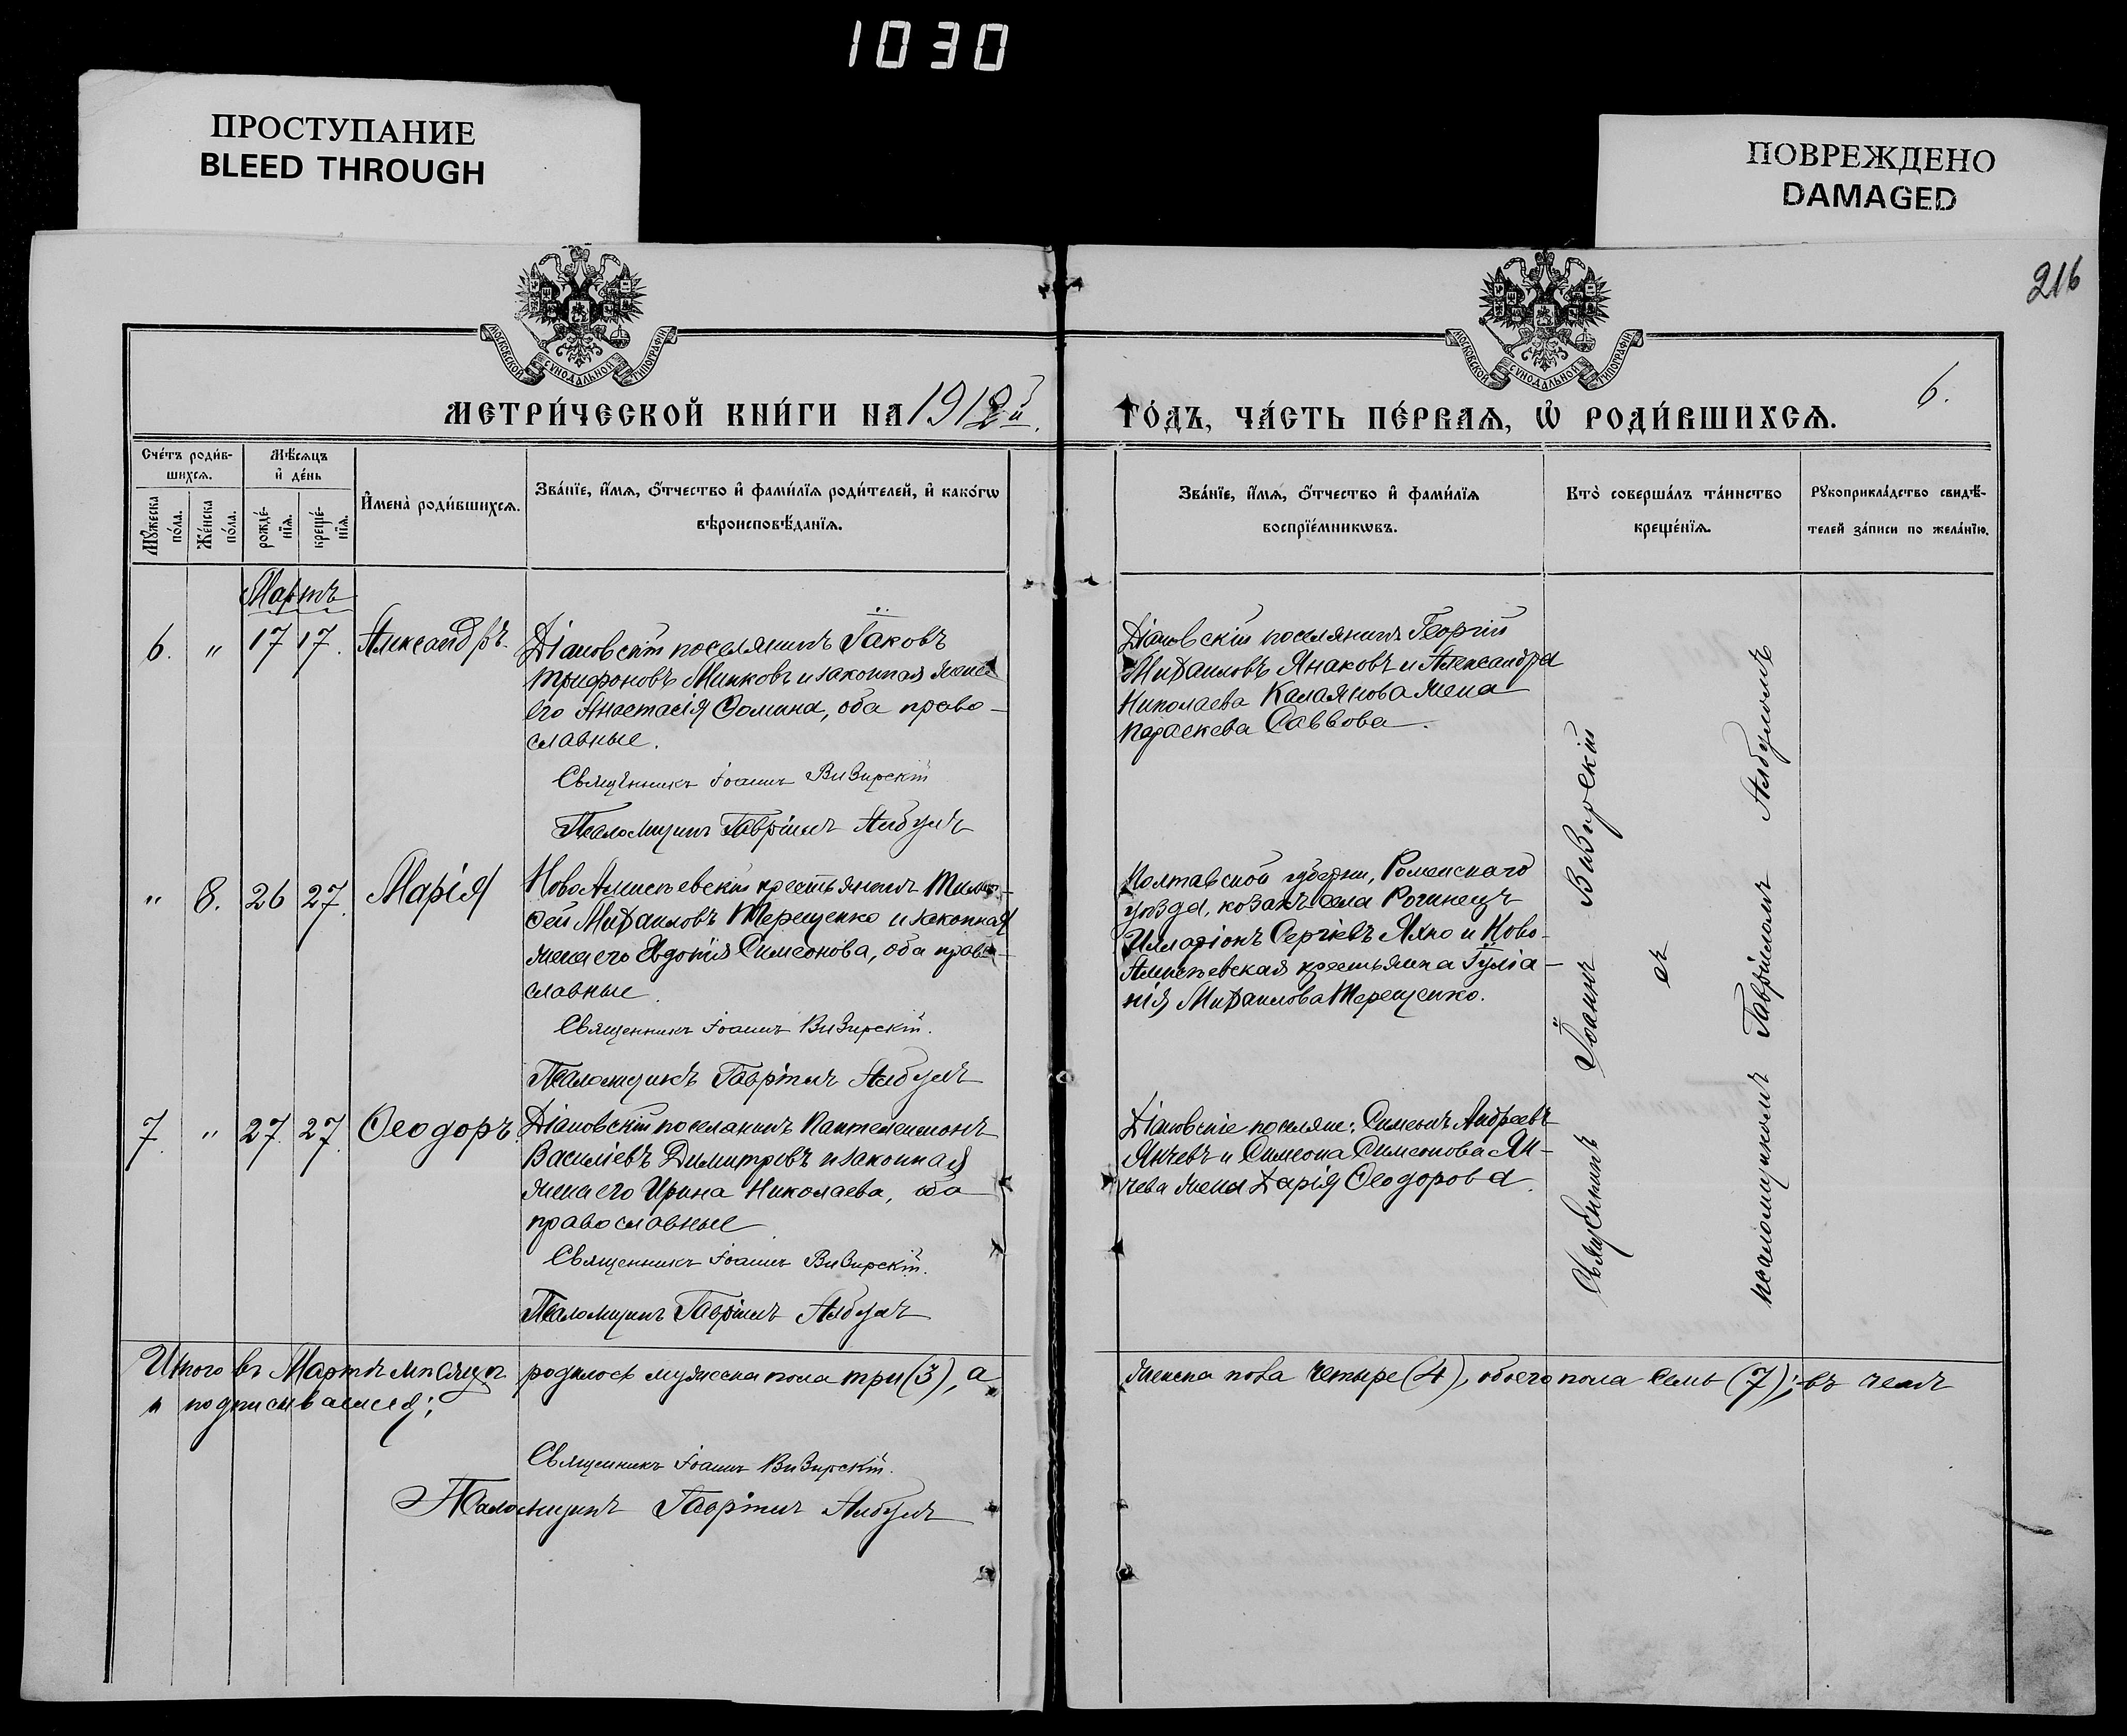 1030
ПРОСТУПАНИЕ
BLEED THROUGH
ПОВРЕЖДЕНО
DAMAGED
216
МОСКОВСКОЙ СѴНОДАЛЬНОЙ ТИПОГРАФІИ
МОСКОВСКОЙ СѴНОДАЛЬНОЙ ТИПОГРАФІИ
6.
МЕТРИ́ЧЕСКОЙ КНИ́ГИ НА 1912й
ГО́ДЪ, ЧА́СТЬ ПЕ́РВАѦ, Ѡ҆ РОДИ́ВШИХСѦ.
Сче́тъ роди́в-
шихсѧ.
Мѣ́сѧцъ
и҆ де́нь
Мꙋ́жеска
по́ла.
Же́нска
по́ла.
рожде́-
нїѧ.
креще́-
нїѧ.
И҆мена̀ роди́вшихсѧ.
Зва́нїе, и҆́мѧ, ѻ҆́тчество и҆ фами́лїѧ роди́телей, и҆ како́гѡ
вѣроисповѣ́данїѧ.
Зва́нїе, и҆́мѧ, ѻ҆́тчество и҆ фами́лїѧ
воспрїе́мникѡвъ.
Кто̀ соверша́лъ та́инство
креще́нїѧ.
Рꙋкоприкла́дство свидѣ́-
телей за́писи по жела́нїю.
Мартъ
6. " 17 17. Александръ.
Діановскій поселянинъ Іаковъ
Трифоновъ Минковъ и законная жена
его Анастасія Ѳомина, оба право-
славные.
Священникъ Іоаннъ Визирскій
Псаломщикъ Гавріилъ Албулъ
Діановскій поселянинъ Георгій
Михаиловъ Янаковъ и Александра
Николаева Калаянова жена
Параскева Саввова.
" 8. 26 27. Марія
Ново Алексѣевскій крестьянинъ Тимо-
фей Михаиловъ Терещенко и законная
жена его Евдокія Симеонова, оба право-
славные.
Священникъ Іоаннъ Визирскій.
Псаломщикъ Гавріилъ Албулъ
Полтавской губерніи, Роменскаго
уѣзда, козакъ села Рогинецъ
Илларіонъ Сергіевъ Яхно и Ново-
Алексѣевская крестьянка Іуліа-
нія Михаилова Терещенко.
7. " 27. 27. Ѳеодоръ.
Діановскій поселянинъ Пантелеимонъ
Василіевъ Димитровъ и законная
жена его Ирина Николаева, оба
православные.
Священникъ Іоаннъ Визирскій.
Псаломщикъ Гавріилъ Албулъ
Діановскіе поселяне: Симеонъ Андреевъ
Янчевъ и Симеона Симеонова Ян-
чева жена Дарія Ѳеодорова.
Священникъ Іоаннъ Визирскій
съ
псаломщикомъ Гавріиломъ Албуломъ
Итого въ Мартѣ мѣсяцѣ родилось мужеска пола три (3), а
женска пола четыре (4), обоего пола семь (7); въ чемъ
и подписываемся:
Священникъ Іоаннъ Визирскій.
Псаломщикъ Гавріилъ Албулъ